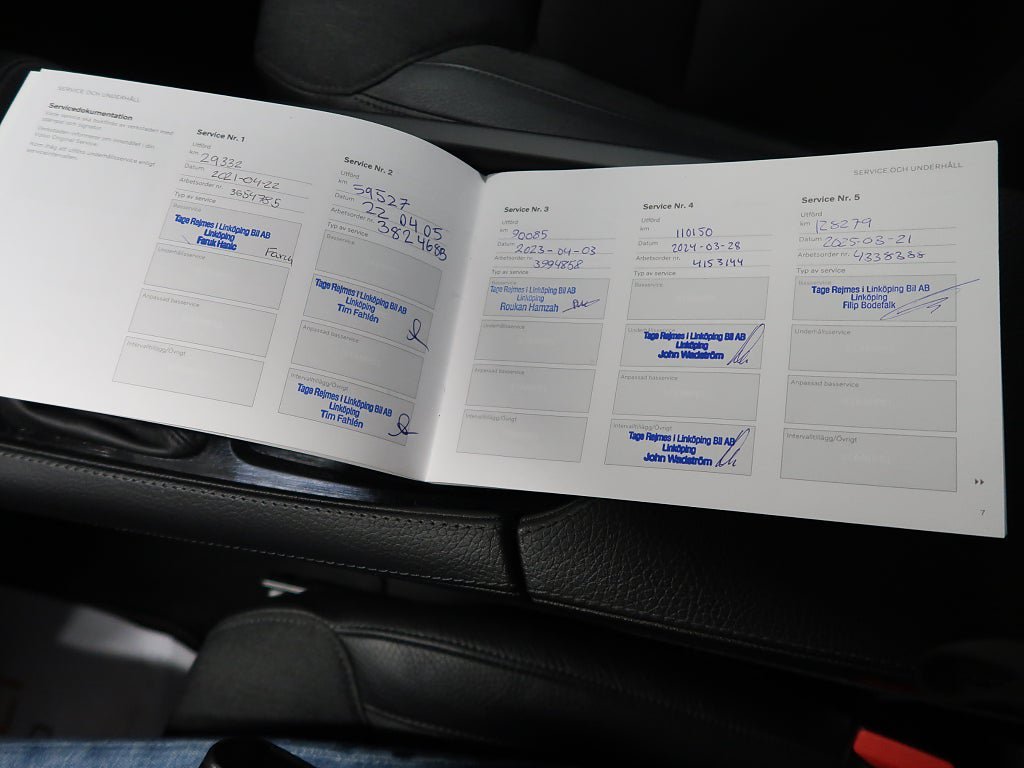 SERVICE OCH UNDERHÅLL
Servicedokumentation
Varje service ska bekräftas av verkstaden med
stämpel och signatur.
Verkstaden informerar om innehållet i din
Volvo Original Service.
Kom ihåg att utföra underhållsservice enligt
serviceintervallen.
Service Nr. 1
Utförd
km 29332
Datum 2021-04-22
Arbetsorder nr.
Typ av service
Basservice
Tage Rejmes i Linköping Bil AB
Linköping
Faruk Hanic
Underhållsservice
Anpassad basservice
Intervalltillägg/Övrigt
Service Nr. 2
Utförd
km 59527
Datum 22 04 05
Arbetsorder nr. 3824688
Typ av service
Basservice
Tage Rejmes i Linköping Bil AB
Linköping
Tim Fahlén
Anpassad basservice
Intervalltillägg/Övrigt
Tage Rejmes i Linköping Bil AB
Linköping
Tim Fahlén
SERVICE OCH UNDERHÅLL
Service Nr. 3
Utförd
km 90085
Datum 2023-04-03
Arbetsorder nr. 3994858
Typ av service
Tage Rejmes i Linköping Bil AB
Linköping
Roukan Hamzah
Underhållsservice
Anpassad basservice
Intervalltillägg/Övrigt
Service Nr. 4
Utförd
km 110150
Datum 2024-03-28
Arbetsorder nr. 4153144
Typ av service
Basservice
Tage Rejmes i Linköping Bil AB
Linköping
John Wadström
Anpassad basservice
Intervalltillägg/Övrigt
Tage Rejmes i Linköping Bil AB
Linköping
John Wadström
Service Nr. 5
Utförd
km 128279
Datum 2025-03-21
Arbetsorder nr. 4338388
Typ av service
Basservice
Tage Rejmes i Linköping Bil AB
Linköping
Filip Bodefalk
Underhållsservice
Anpassad basservice
Intervalltillägg/Övrigt
7